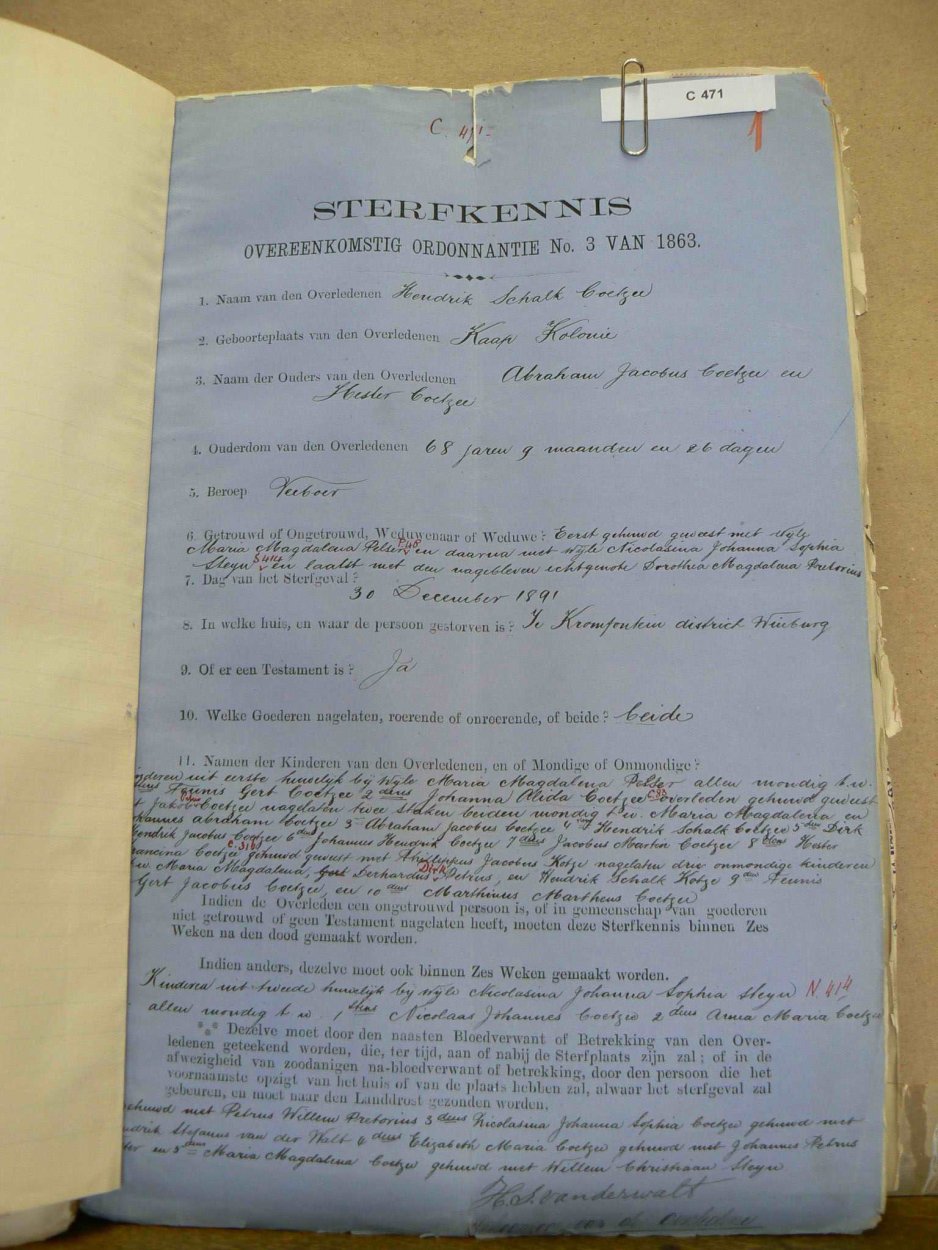 C 471
C. 471.
1
STERFKENNIS
OVEREENKOMSTIG ORDONNANTIE No. 3 VAN 1863.
1. Naam van den Overledenen Hendrik Schalk Coetzee
2. Geboorteplaats van den Overledenen Kaap Kolonie
3. Naam der Ouders van den Overledenen Abraham Jacobus Coetzee en
Hester Coetzee
4. Ouderdom van den Overledenen 68 jaren 9 maanden en 26 dagen
5. Beroep Veeboer
6. Getrouwd of Ongetrouwd, Weduwenaar of Weduwe? Eerst gehuwd geweest met wyle
Maria Magdalena Pelser P48 en daarna met wyle Nicolasina Johanna Sophia
Steyn S414 en laatst met den nagebleven echtgenote Dorothea Magdalena Pretorius
7. Dag van het Sterfgeval?
30 December 1891
8. In welke huis, en waar de persoon gestorven is? Te Kromfontein district Winburg
9. Of er een Testament is? Ja
10. Welke Goederen nagelaten, roerende of onroerende, of beide? beide
11. Namen der Kinderen van den Overledenen, en of Mondige of Onmondige?
uit eerste huwelyk by wyle Maria Magdalena Pelser allen mondig t.w.
Teunis Gert Coetzee 2dens Johanna Alida Coetzee C93 overleden gehuwd geweest
Coetzee nagelaten twee staken beiden mondig t.w. Maria Magdalena en
Abraham Coetzee 3dens Abraham Jacobus Coetzee 4dens Hendrik Schalk Coetzee 5dens Dirk
Hendrik Jacobus Coetzee 6dens Johannes Hendrik Coetzee 7dens Jacobus Martin Coetzee 8dens Hester
Coetzee C.316 gehuwd geweest met Jacobus Kotze nagelaten drie onmondige kinderen
t.w. Maria Magdalena, Gert Derhardus Dirk Petrus, en Hendrik Schalk Kotze 9den Teunis
Gert Jacobus Coetzee, en 10dens Marthinus Martheus Coetzee
Indien de Overleden een ongetrouwd persoon is, of in gemeenschap van goederen
niet getrouwd of geen Testament nagelaten heeft, moeten deze Sterfkennis binnen Zes
Weken na den dood gemaakt worden.
Indien anders, dezelve moet ook binnen Zes Weken gemaakt worden.
Kinderen uit tweede huwelyk by wyle Nicolasina Johanna Sophia Steyn N. 414
allen mondig t w 1stens Nicolaas Johannes Coetzee 2dens Anna Maria Coetzee
*** Dezelve moet door den naasten Bloedverwant of Betrekking van den Over-
ledenen geteekend worden, die, ter tijd, aan of nabij de Sterfplaats zijn zal; of in de
afwezigheid van zoodanigen na-bloedverwant of betrekking, door den persoon die het
voornaamste opzigt van het huis of van de plaats hebben zal, alwaar het sterfgeval zal
gebeuren, en moet naar den Landdrost gezonden worden.
gehuwd met Petrus Willem Pretorius 3dens Nicolasina Johanna Sophia Coetzee gehuwd met
Stefanus van der Walt 4dens Elizabeth Maria Coetzee gehuwd met Johannes Petrus
en 5dens Maria Magdalena Coetzee gehuwd met Willem Christiaan Steyn
H.S. vanderwalt